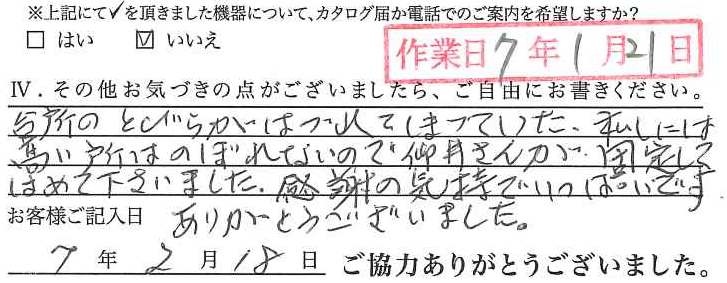 ※上記にて✓を頂きました機器について、カタログ届か電話でのご案内を希望しますか?
□ はい ☑ いいえ
作業日 7年1月21日
Ⅳ．その他お気づきの点がございましたら、ご自由にお書きください。
台所のとびらがはづれてしまっていた、私しには
高い所はのぼれないので仰井さんが、固定して
はめて下さいました。感謝の気持でいっぱいです
お客様ご記入日 ありがとうございました。
7年2月18日 ご協力ありがとうございました。